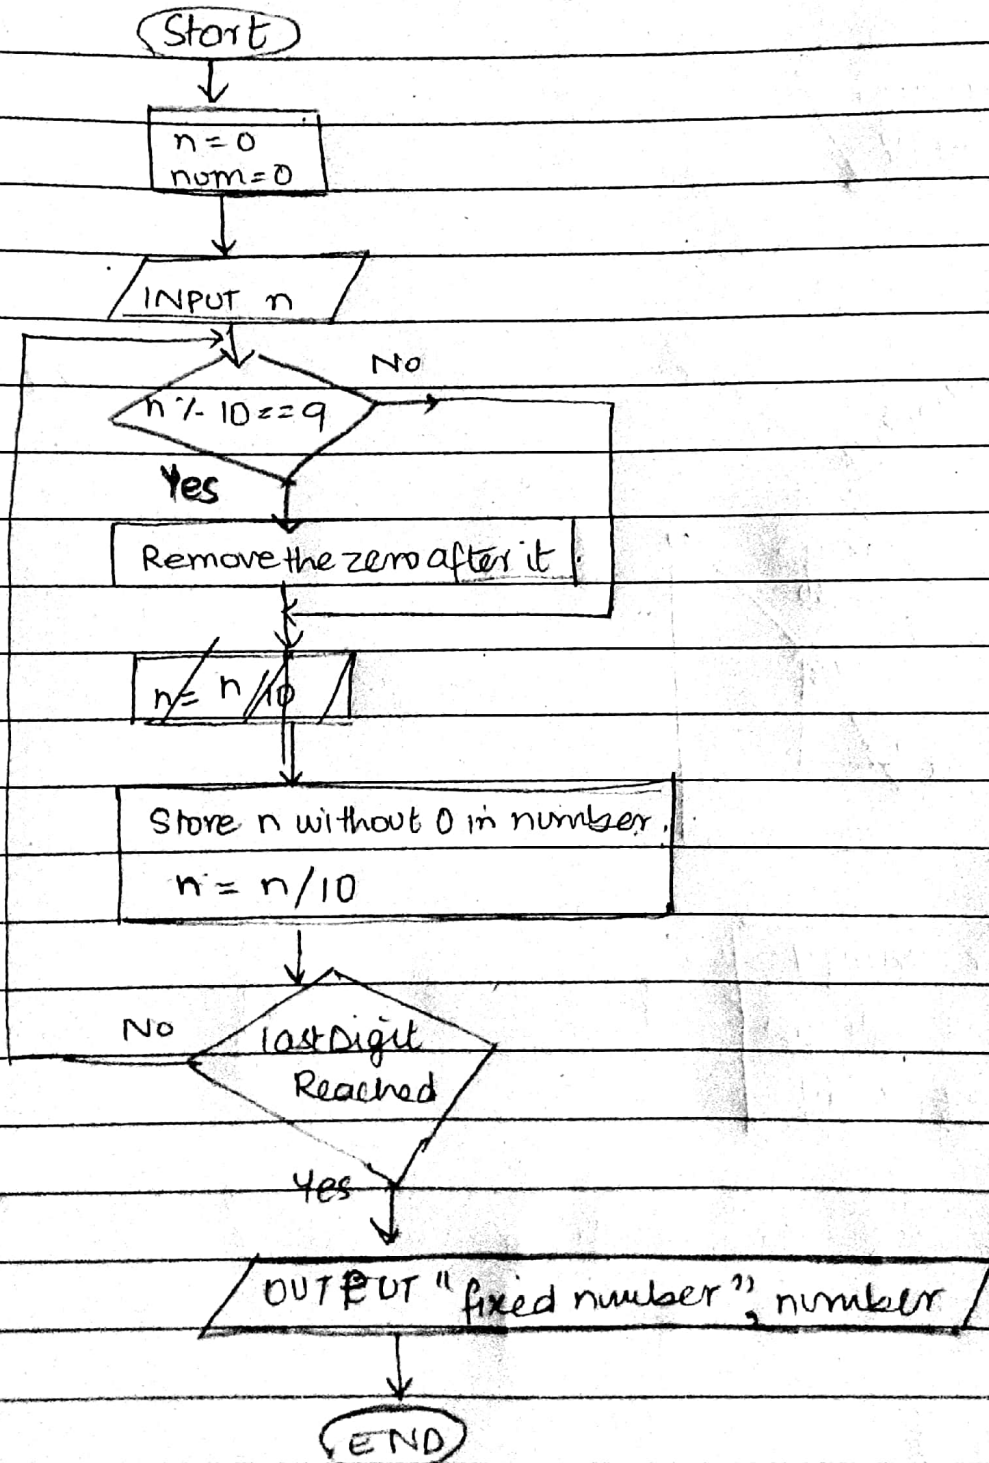 Start
n=0
num=0
INPUT n
n % 10==9
No
Yes
Remove the zero after it
n= n/10
Store n without 0 in number.
n = n/10
No
last Digit
Reached
Yes
OUTPUT "fixed number", number
END